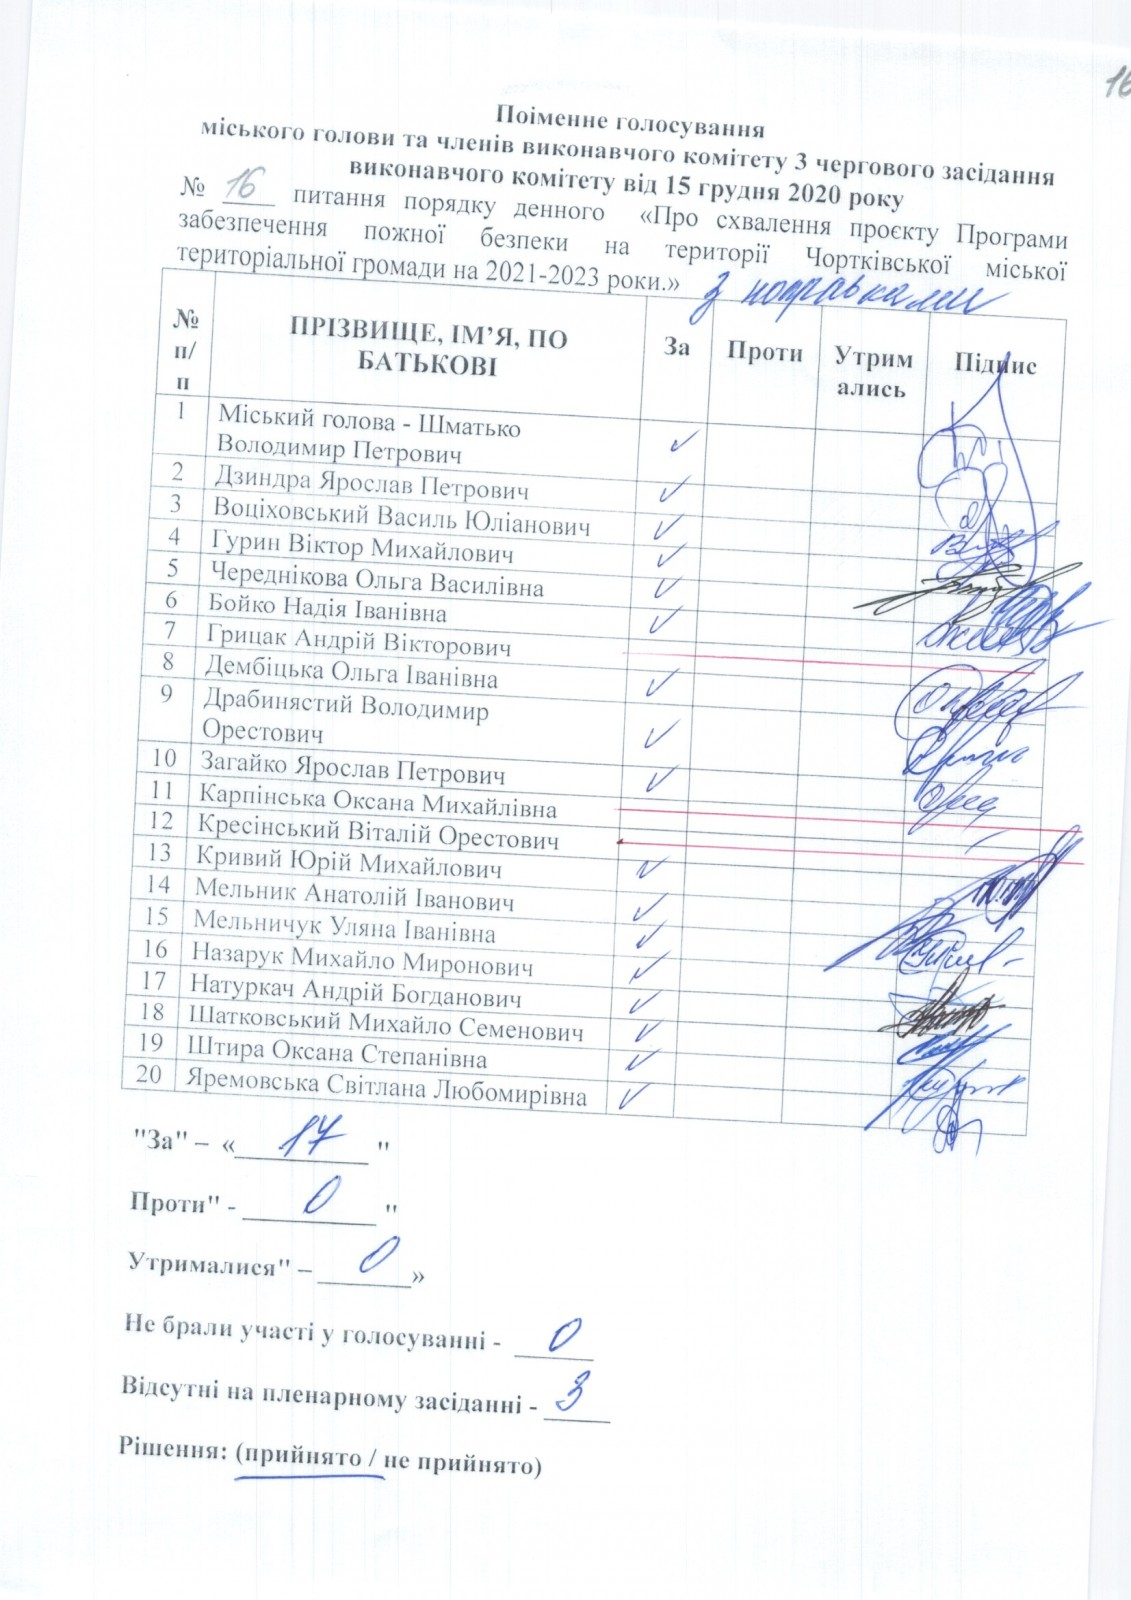 16
Поіменне голосування
міського голови та членів виконавчого комітету 3 чергового засідання
виконавчого комітету від 15 грудня 2020 року
№ 16 питання порядку денного «Про схвалення проєкту Програми
забезпечення пожної безпеки на території Чортківської міської
територіальної громади на 2021-2023 роки.» з поправками
№ п/п ПРІЗВИЩЕ, ІМ’Я, ПО БАТЬКОВІ За Проти Утримались Підпис
1 Міський голова - Шматько
Володимир Петрович ✓
2 Дзиндра Ярослав Петрович ✓
3 Воціховський Василь Юліанович ✓
4 Гурин Віктор Михайлович ✓
5 Череднікова Ольга Василівна ✓
6 Бойко Надія Іванівна ✓
7 Грицак Андрій Вікторович
8 Дембіцька Ольга Іванівна ✓
9 Драбинястий Володимир
Орестович ✓
10 Загайко Ярослав Петрович ✓
11 Карпінська Оксана Михайлівна
12 Кресінський Віталій Орестович
13 Кривий Юрій Михайлович ✓
14 Мельник Анатолій Іванович ✓
15 Мельничук Уляна Іванівна ✓
16 Назарук Михайло Миронович ✓
17 Натуркач Андрій Богданович ✓
18 Шатковський Михайло Семенович ✓
19 Штира Оксана Степанівна ✓
20 Яремовська Світлана Любомирівна ✓
"За" – « 17 "
Проти" - 0 "
Утрималися" – 0 »
Не брали участі у голосуванні - 0
Відсутні на пленарному засіданні - 3
Рішення: (прийнято / не прийнято)